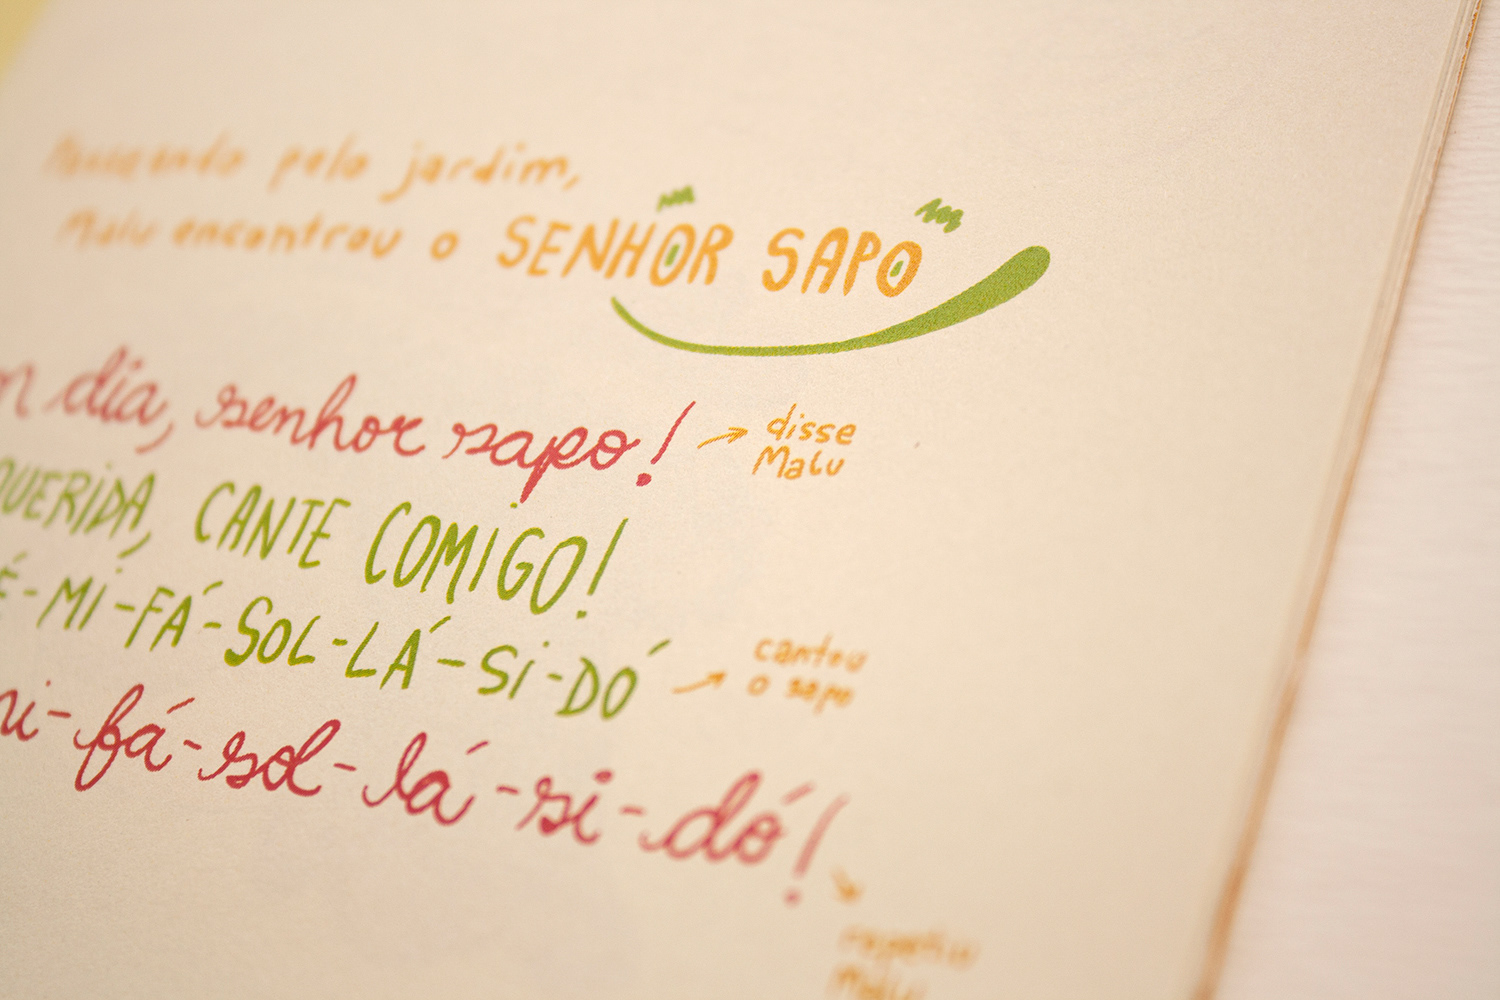 pelo jardim,
Malu encontrou o SENHOR SAPO
dia, senhor sapo! → disse
Malu
QUERIDA, CANTE COMIGO!
É-MI-FÁ-SOL-LÁ-SI-DÓ → cantou
o sapo
mi-fá-sol-lá-si-dó!
repetiu
Malu